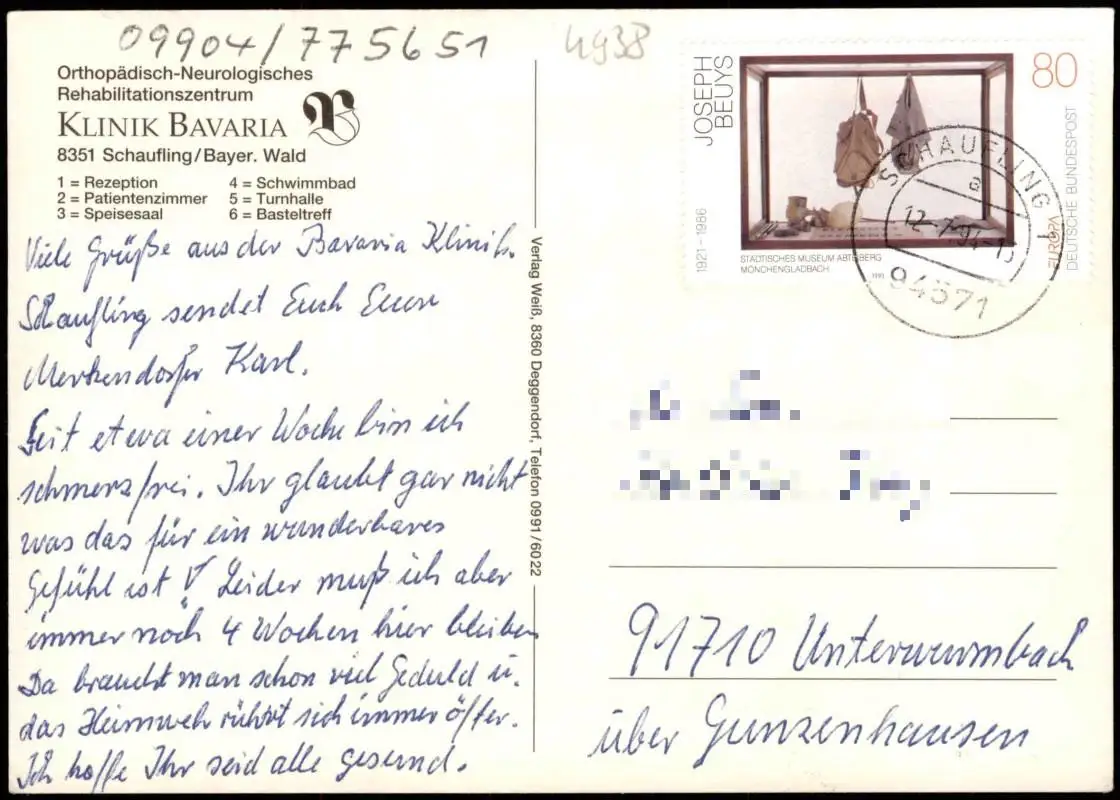 09904/775651
4938
Orthopädisch-Neurologisches
Rehabilitationszentrum
KLINIK BAVARIA
8351 Schaufling/Bayer. Wald
1 = Rezeption 4 = Schwimmbad
2 = Patientenzimmer 5 = Turnhalle
3 = Speisesaal 6 = Basteltreff
Viele Grüße aus der Bavaria Klinik.
Schaufling sendet Euch Euer
Merkendorfer Karl.
Seit etwa einer Woche bin ich
schmerzfrei. Ihr glaubt gar nicht
was das für ein wunderbares
Gefühl ist! Leider muß ich aber
immer noch 4 Wochen hier bleiben
Da braucht man schon viel Geduld u.
das Heimweh rührt sich immer öfter.
Ich hoffe Ihr seid alle gesund.
Verlag Weiß, 8360 Deggendorf, Telefon 0991/6022
JOSEPH
BEUYS
80
1921–1986
STÄDTISCHES MUSEUM ABTEIBERG
MÖNCHENGLADBACH
1991
EUROPA
DEUTSCHE BUNDESPOST
SCHAUFLING 1
a
12-7.94-1
94571
91710 Unterwurmbach
über Gunzenhausen